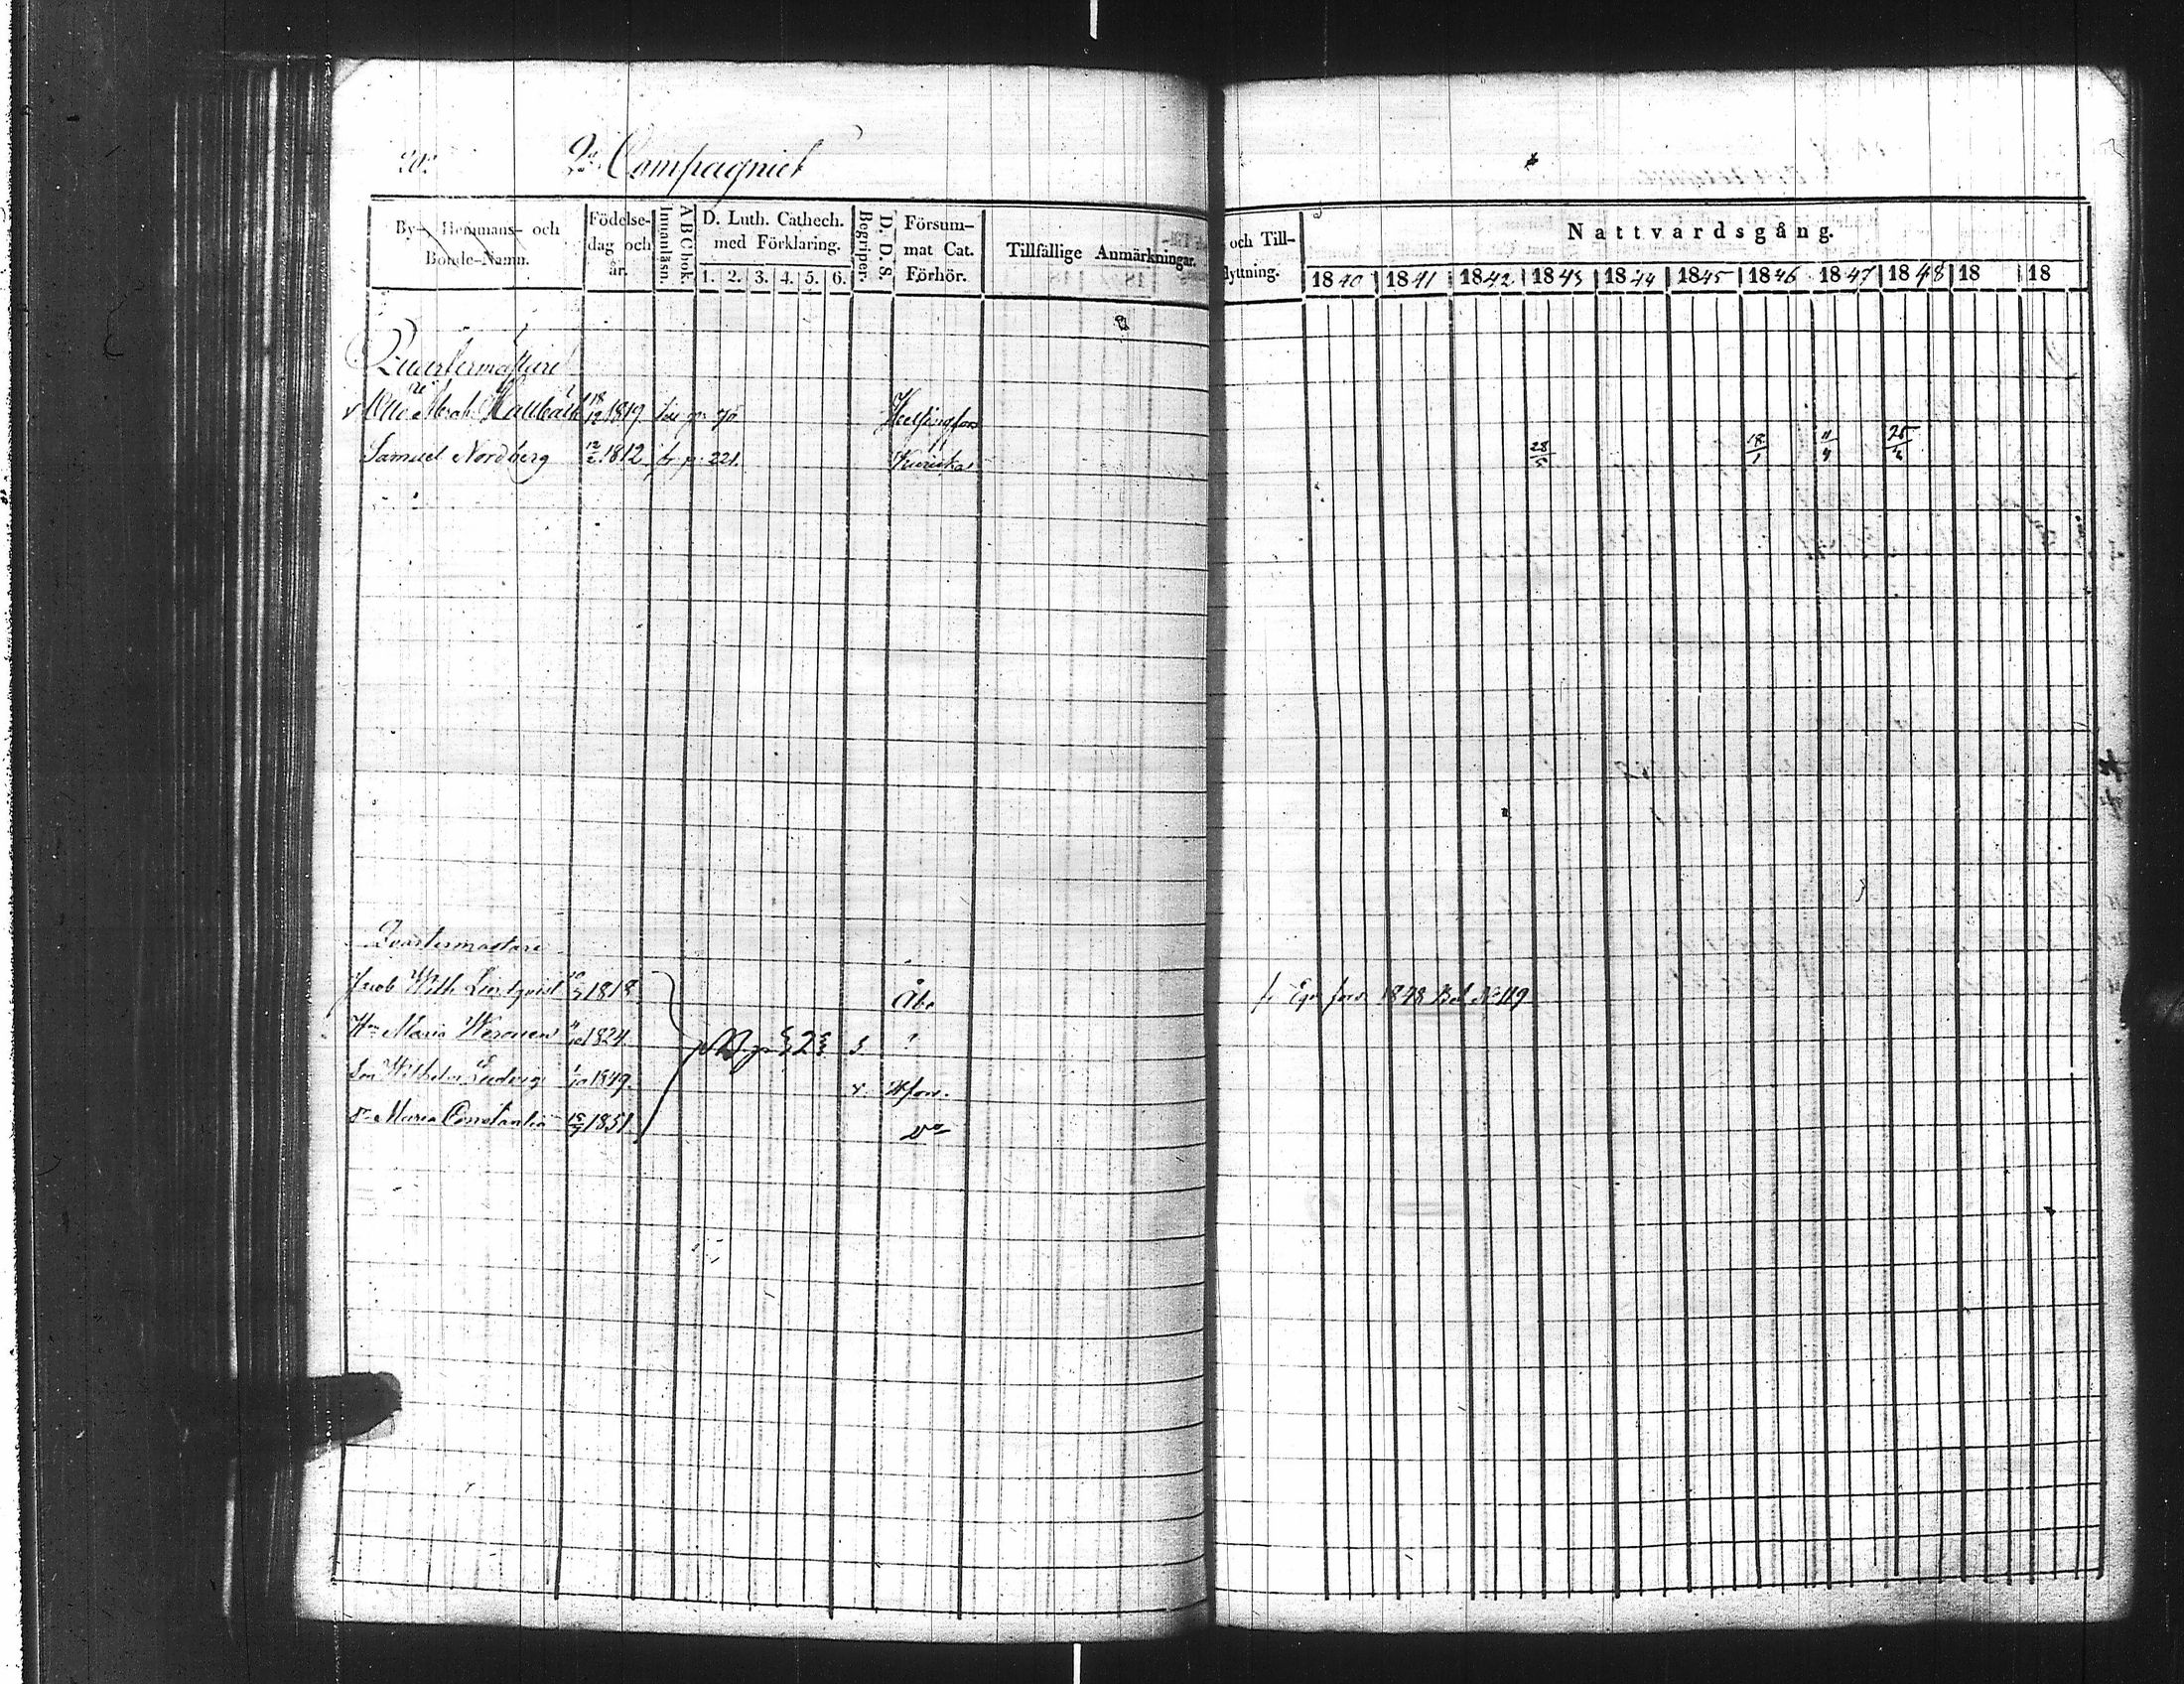 202 2a Compagniet
By- Hemmans- och Bonde-Namn. Födelse-dag och år. ABCbok. Innanläsn. D. Luth. Cathech. med Förklaring. 1. 2. 3. 4. 5. 6. D. D. S. Begriper. Försum-mat Cat. Förhör. Tillfällige Anmärkningar. och Till- lyttning. Nattvardsgång.
1840 1841 1842 1843 1844 1845 1846 1847 1848 18 18
Quartermästare
v Otto Abrah. 18/12 1819 Helsingfors
Samuel Nordberg 12/2 1812 fr. p. 221. 28/5 18/1 11/4 25/6
Quartermästare
Jacob Wilh Lindqvist 1818 Åbo 1848 Bet No 119
Hu Maria 11/10 1824 ?
Son Wilhelm Ludvig 1/10 1849. v. Hfors.
Dr Maria Constantia 1851. Do